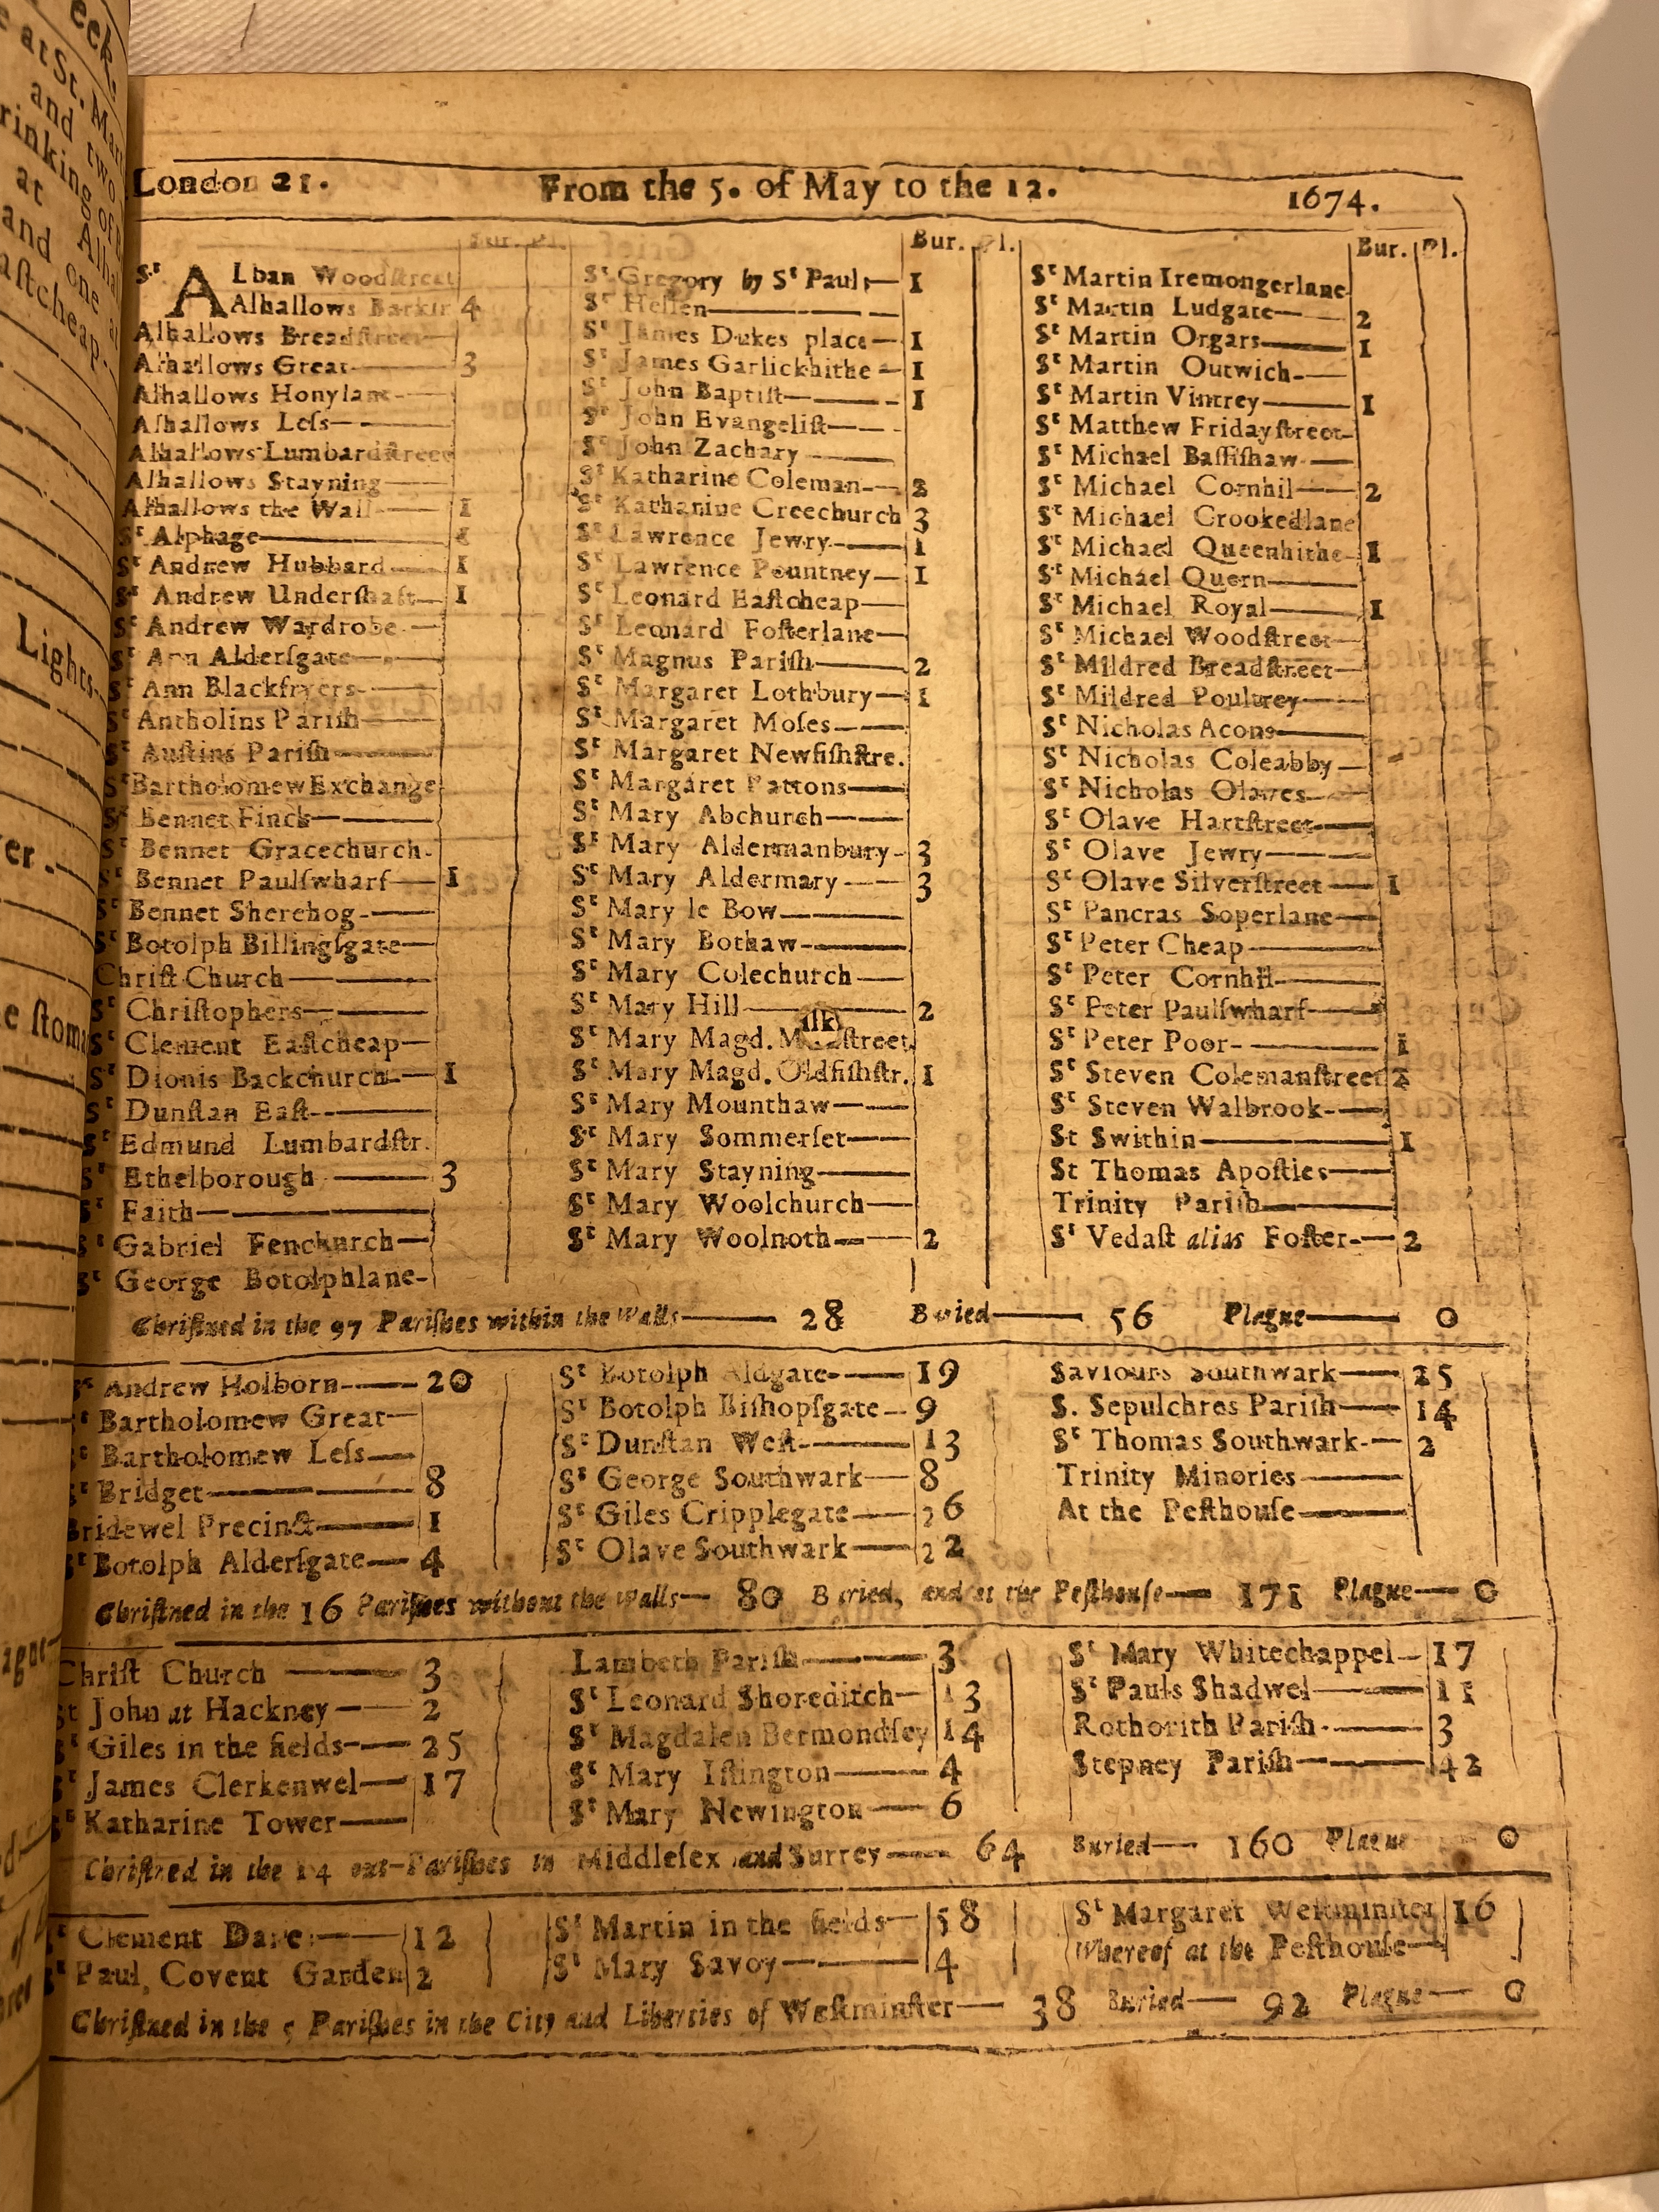 London 21. From the 5. of May to the 12. 1674.
Bur. Pl.
Sᵗ ALban Woodſtreet
Alhallows Barkin 4
Alhallows Breadſtreet
Alhallows Great 3
Alhallows Honylane
Alhallows Leſs
Alhallows Lumbardſtreet
Alhallows Stayning
Alhallows the Wall 1
Sᵗ Alphage
Sᵗ Andrew Hubbard 1
Sᵗ Andrew Underſhaft 1
Sᵗ Andrew Wardrobe
Sᵗ Ann Alderſgate
Sᵗ Ann Blackfryers
Sᵗ Antholins Pariſh
Sᵗ Auſtins Pariſh
Sᵗ Bartholomew Exchange
Sᵗ Bennet Finck
Sᵗ Bennet Gracechurch
Sᵗ Bennet Paulſwharf 1
Sᵗ Bennet Sherehog
Sᵗ Botolph Billingſgate
Chriſt Church
Sᵗ Chriſtophers
Sᵗ Clement Eaſtcheap
Sᵗ Dionis Backchurch 1
Sᵗ Dunſtan Eaſt
Sᵗ Edmund Lumbardſtr.
Sᵗ Ethelborough 3
Sᵗ Faith
Sᵗ Gabriel Fenchurch
Sᵗ George Botolphlane
Bur. Pl.
Sᵗ Gregory by Sᵗ Pauls 1
Sᵗ Hellen
Sᵗ James Dukes place 1
Sᵗ James Garlickhithe 1
Sᵗ John Baptiſt 1
Sᵗ John Evangeliſt
Sᵗ John Zachary
Sᵗ Katharine Coleman 2
Sᵗ Katharine Creechurch 3
Sᵗ Lawrence Jewry 1
Sᵗ Lawrence Pountney 1
Sᵗ Leonard Eaſtcheap
Sᵗ Leonard Foſterlane
Sᵗ Magnus Pariſh 2
Sᵗ Margaret Lothbury 1
Sᵗ Margaret Moſes
Sᵗ Margaret Newfiſhſtre.
Sᵗ Margaret Pattons
Sᵗ Mary Abchurch
Sᵗ Mary Aldermanbury 3
Sᵗ Mary Aldermary 3
Sᵗ Mary le Bow
Sᵗ Mary Bothaw
Sᵗ Mary Colechurch
Sᵗ Mary Hill 2
Sᵗ Mary Magd. Milkſtreet
Sᵗ Mary Magd. Oldfiſhſtr. 1
Sᵗ Mary Mounthaw
Sᵗ Mary Sommerſet
Sᵗ Mary Stayning
Sᵗ Mary Woolchurch
Sᵗ Mary Woolnoth 2
Bur. Pl.
Sᵗ Martin Iremongerlane
Sᵗ Martin Ludgate 2
Sᵗ Martin Orgars 1
Sᵗ Martin Outwich
Sᵗ Martin Vintrey 1
Sᵗ Matthew Fridayſtreet
Sᵗ Michael Baſſiſhaw
Sᵗ Michael Cornhil 2
Sᵗ Michael Crookedlane
Sᵗ Michael Queenhithe 1
Sᵗ Michael Quern
Sᵗ Michael Royal 1
Sᵗ Michael Woodſtreet
Sᵗ Mildred Breadſtreet
Sᵗ Mildred Poultrey
Sᵗ Nicholas Acons
Sᵗ Nicholas Coleabby
Sᵗ Nicholas Olaves
Sᵗ Olave Hartſtreet
Sᵗ Olave Jewry
Sᵗ Olave Silverſtreet 1
Sᵗ Pancras Soperlane
Sᵗ Peter Cheap
Sᵗ Peter Cornhil
Sᵗ Peter Paulſwharf
Sᵗ Peter Poor 1
Sᵗ Steven Colemanſtreet 2
Sᵗ Steven Walbrook
St Swithin 1
St Thomas Apoſtles
Trinity Pariſh
Sᵗ Vedaſt alias Foſter 2
Chriſtned in the 97 Pariſhes within the Walls 28 Buried 56 Plague 0
Sᵗ Andrew Holborn 20
Sᵗ Bartholomew Great
Sᵗ Bartholomew Leſs
Sᵗ Bridget 8
Bridewel Precinct 1
Sᵗ Botolph Alderſgate 4
Sᵗ Botolph Aldgate 19
Sᵗ Botolph Biſhopſgate 9
Sᵗ Dunſtan Weſt 13
Sᵗ George Southwark 8
Sᵗ Giles Cripplegate 26
Sᵗ Olave Southwark 22
Saviours Southwark 25
S. Sepulchres Pariſh 14
Sᵗ Thomas Southwark 2
Trinity Minories
At the Peſthouſe
Chriſtned in the 16 Pariſhes without the Walls 80 Buried, and at the Peſthouſe 171 Plague 0
Chriſt Church 3
St John at Hackney 2
Sᵗ Giles in the fields 25
Sᵗ James Clerkenwel 17
Sᵗ Katharine Tower
Lambeth Pariſh 3
Sᵗ Leonard Shoreditch 13
Sᵗ Magdalen Bermondſey 14
Sᵗ Mary Iſlington 4
Sᵗ Mary Newington 6
Sᵗ Mary Whitechappel 17
Sᵗ Pauls Shadwel 11
Rothorith Pariſh 3
Stepney Pariſh 42
Chriſtned in the 14 out-Pariſhes in Middleſex and Surrey 64 Buried 160 Plague 0
Sᵗ Clement Danes 12
Sᵗ Paul, Covent Garden 2
Sᵗ Martin in the fields 58
Sᵗ Mary Savoy 4
Sᵗ Margaret Weſtminſter 16
Whereof at the Peſthouſe
Chriſtned in the 5 Pariſhes in the City and Liberties of Weſtminſter 38 Buried 92 Plague 0